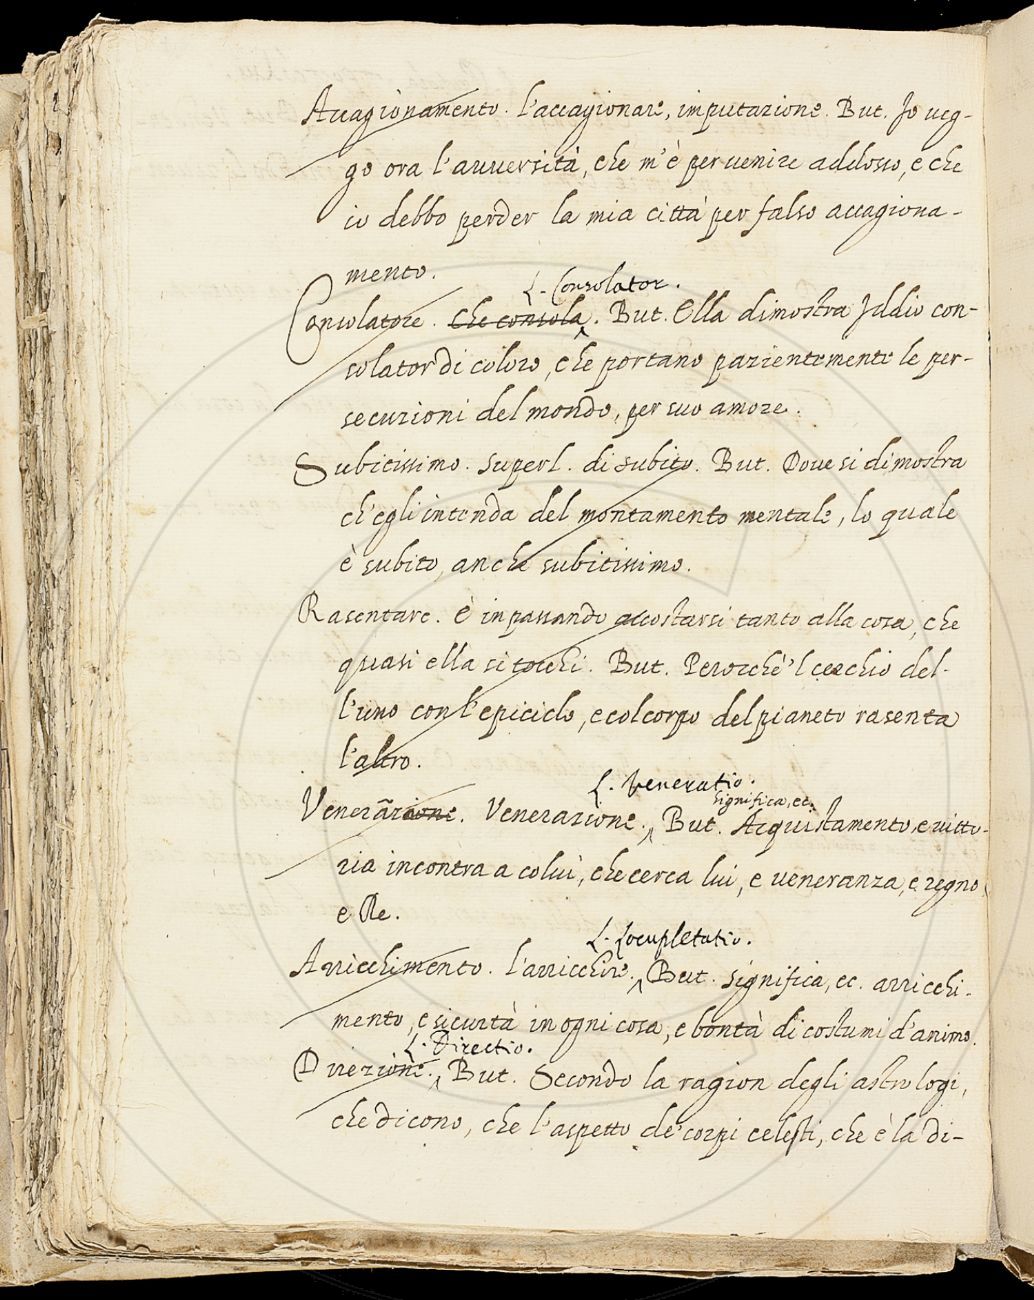 Accagionamento. l'accagionare, imputazione. But. Io veg-
go ora l'avversità, che m'è per venire addosso, e che
io debbo perder la mia città per falso accagiona-
mento.
L. Consolator.
Consolatore. Che consola. But. Ella dimostra Iddio con-
solator di coloro, che portano pazientemente le per-
secuzioni del mondo, per suo amore.
Subitissimo. Superl. di subito. But. Dove si dimostra
ch'egli intenda del montamento mentale, lo quale
è subito, anche subitissimo.
Rasentare. È in passando accostarsi tanto alla cosa, che
quasi ella si tocchi. But. Perocchè 'l cerchio del-
l'uno con l'epiciclo, e col corpo del pianeto rasenta
l'altro.
L. Veneratio.
significa, ec.
Venerazione. Venerazione. But. Acquistamento, e vitto-
ria incontra a colui, che cerca lui, e veneranza, e regno,
e Re.
L. Locupletatio.
Arricchimento. l'arricchire. But. Significa, ec. arricchi-
mento, e sicurtà in ogni cosa, e bontà di costumi d'animo.
L. Directio.
Direzione. But. Secondo la ragion degli astrologi,
che dicono, che l'aspetto de' corpi celesti, che è la di-